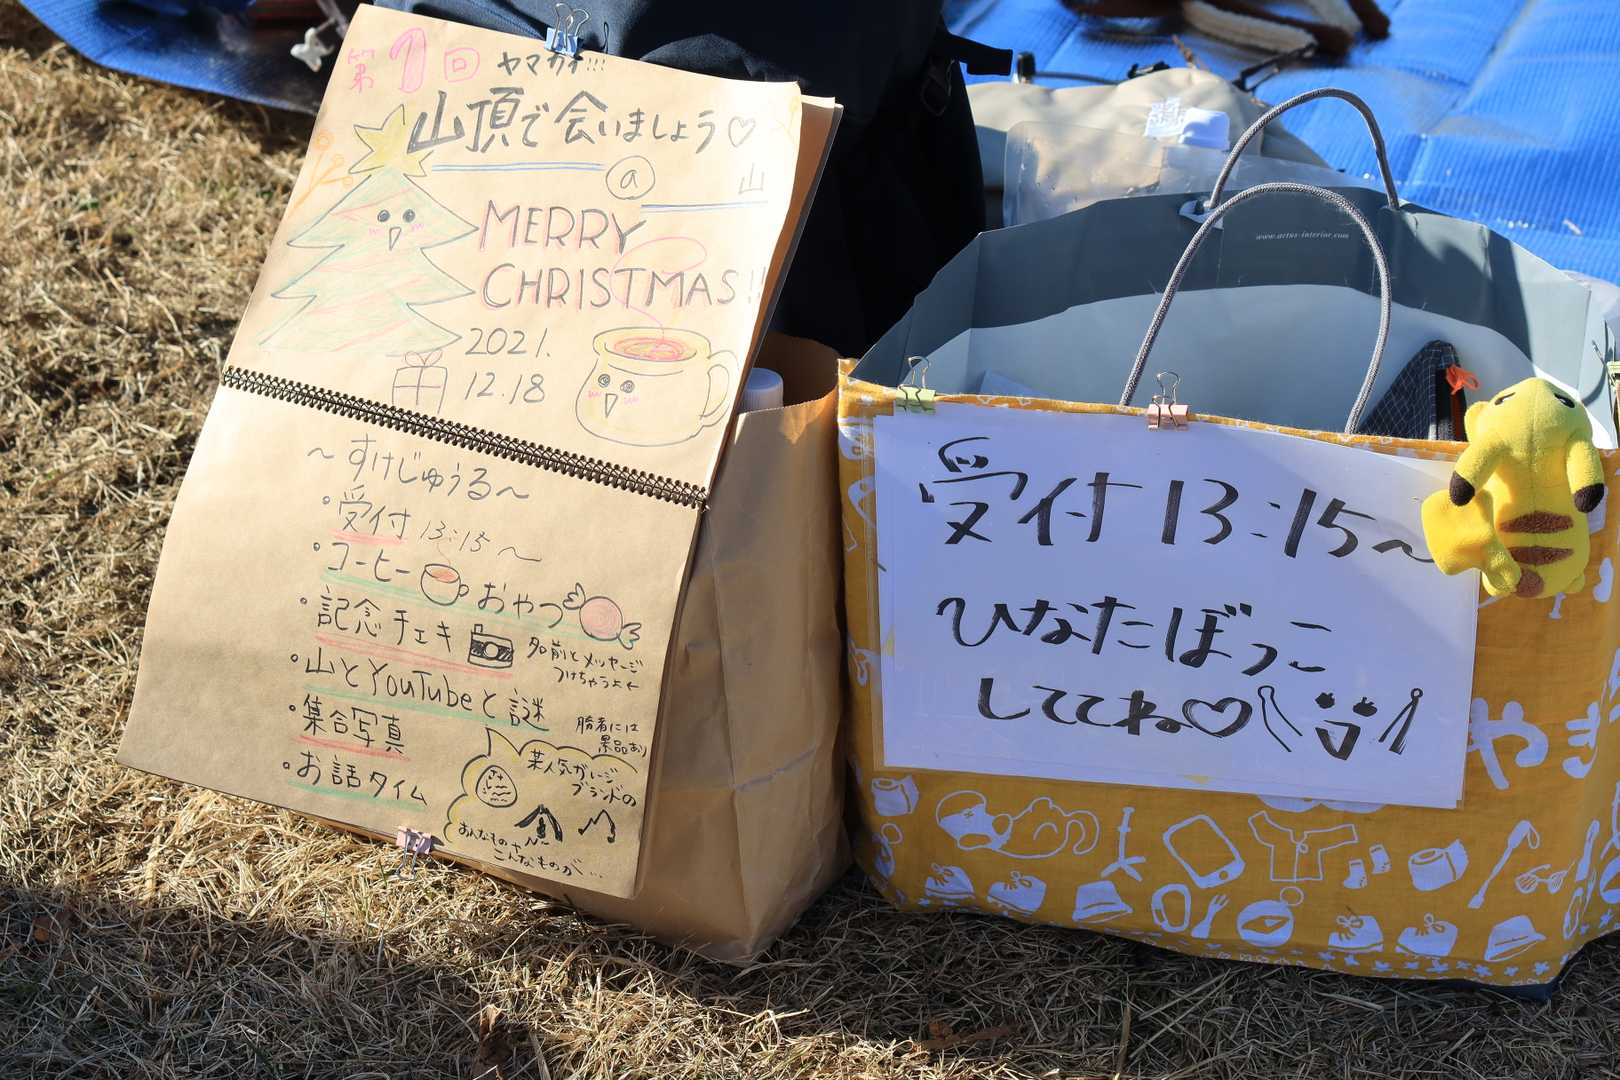 第1回 ヤマカイ!!!
山頂で会いましょう♡
@ 山
MERRY
CHRISTMAS!!
2021.
12.18
～すけじゅうる～
・受付 13:15～
・コーヒー おやつ
・記念チェキ 名前とメッセージ
つけちゃうよ←
・山とYouTubeと謎
勝者には
景品あり
・集合写真
・お話タイム
某人気ガレージ
ブランドの
あんなものや
こんなものが…
www.actus-interior.com
受付 13:15～
ひなたぼっこ
しててね♡
やま